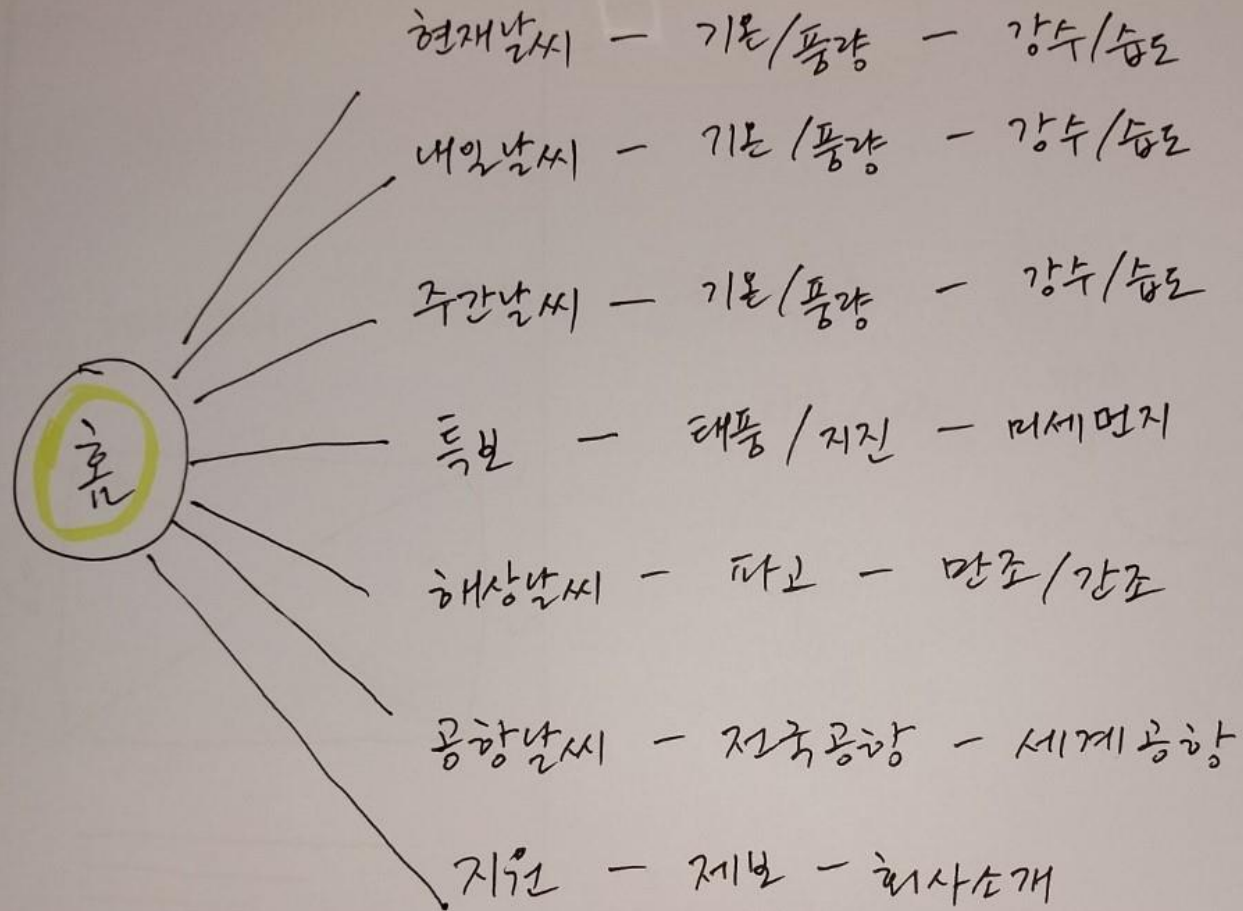 현재날씨 - 기온/풍량 - 강수/습도
내일날씨 - 기온/풍량 - 강수/습도
주간날씨 - 기온/풍량 - 강수/습도
홈
특보 - 태풍/지진 - 미세먼지
해상날씨 - 파고 - 만조/간조
공항날씨 - 전국공항 - 세계공항
지원 - 제보 - 회사소개